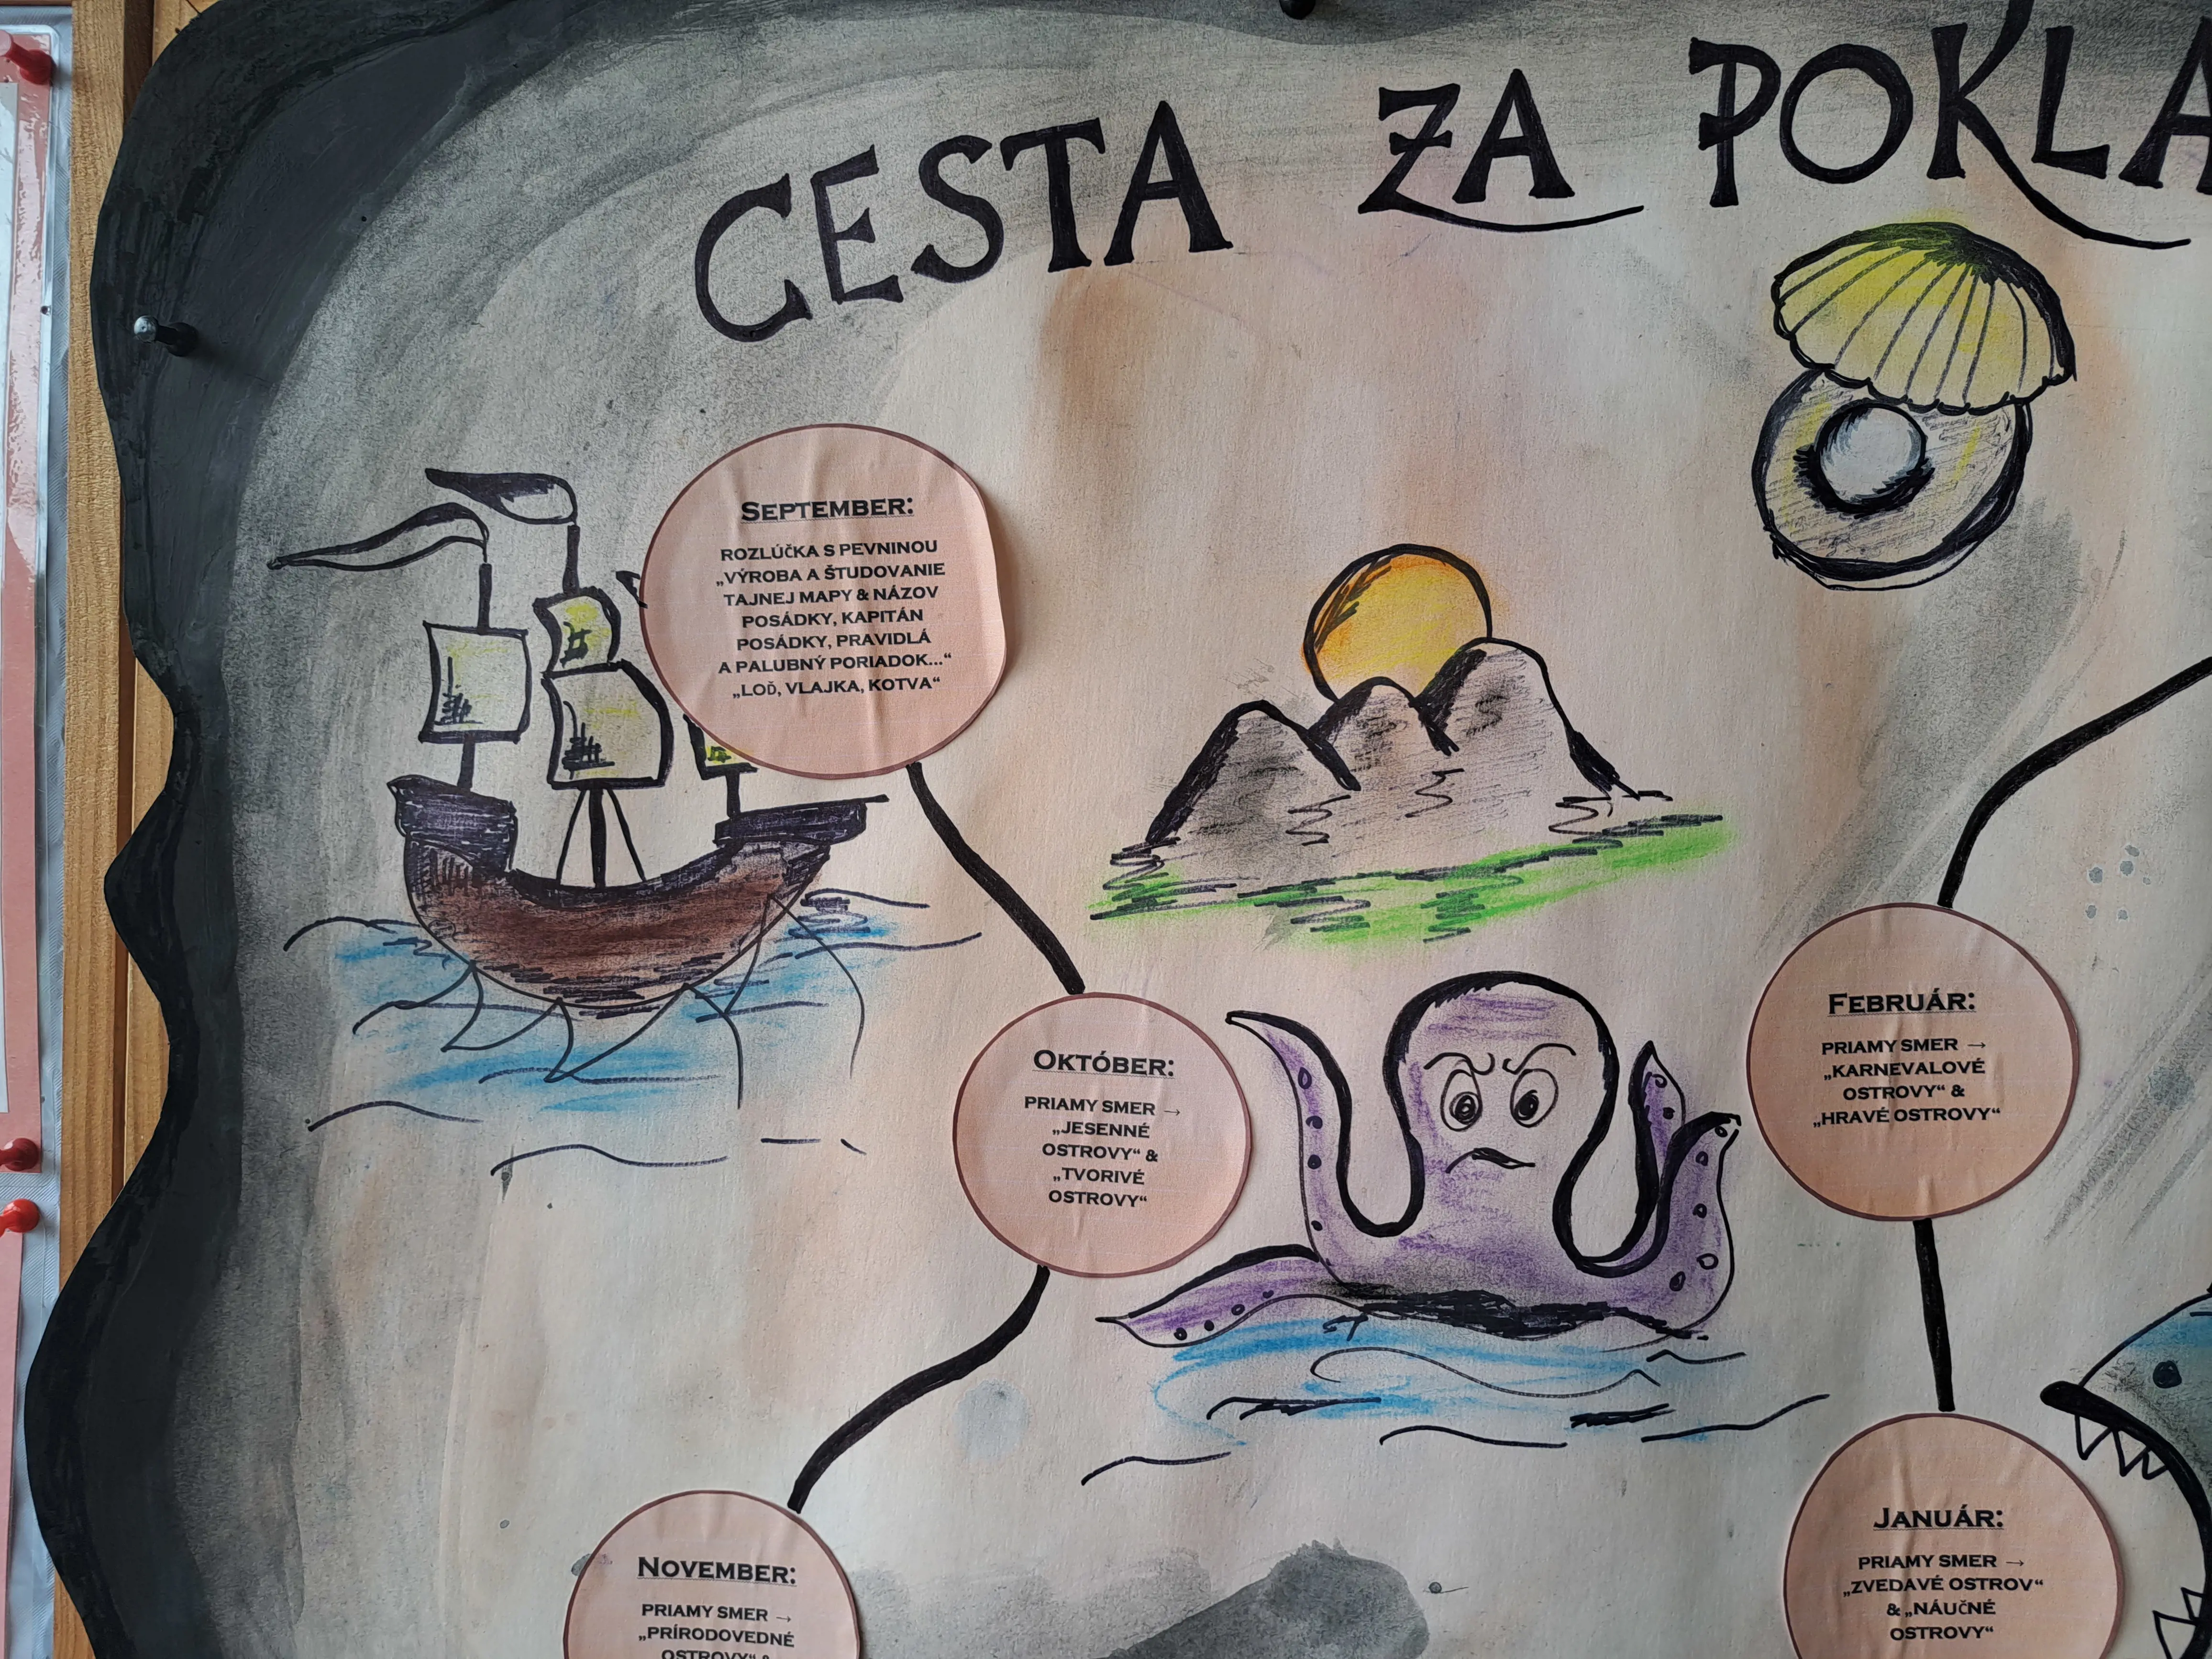 CESTA ZA
SEPTEMBER:
ROZLÚČKA S PEVNINOU
„VÝROBA A ŠTUDOVANIE
TAJNEJ MAPY & NÁZOV
POSÁDKY, KAPITÁN
POSÁDKY, PRAVIDLÁ
A PALUBNÝ PORIADOK...“
„LOĎ, VLAJKA, KOTVA“
OKTÓBER:
PRIAMY SMER →
„JESENNÉ
OSTROVY“ &
„TVORIVÉ
OSTROVY“
NOVEMBER:
PRIAMY SMER →
„PRÍRODOVEDNÉ
OSTROVY“ &
FEBRUÁR:
PRIAMY SMER →
„KARNEVALOVÉ
OSTROVY“ &
„HRAVÉ OSTROVY“
JANUÁR:
PRIAMY SMER →
„ZVEDAVÉ OSTROV“
& „NÁUČNÉ
OSTROVY“